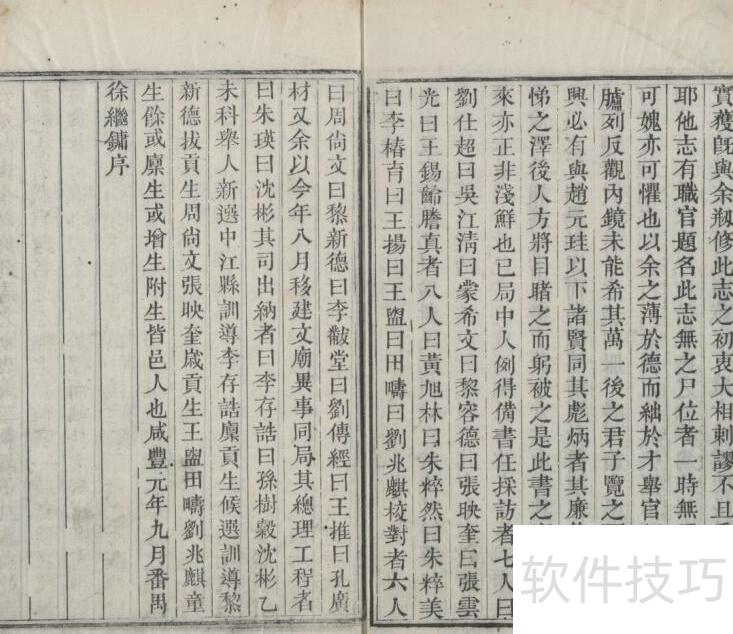 實獲旣與余剏修此志之初衷大相刺謬不且
耶他志有職官題名此志無之尸位者一時無
可媿亦可懼也以余之薄於德而絀於才舉官
臚列反觀內鏡未能希其萬一後之君子覽之
興必有與趙元珪以下諸賢同其彪炳者其廉
悌之澤後人方將目睹之而躬被之是此書之
來亦正非淺鮮也已局中人例得備書任採訪者七人曰
劉仕超曰吳江清曰蒙希文曰黎容德曰張映奎曰張雲
光曰王錫齡謄真者八人曰黃旭林曰朱粹然曰朱粹美
曰李椿育曰王揚曰王盥曰田疇曰劉兆麒校對者六人
曰周尙文曰黎新德曰李黻堂曰劉傳經曰王推曰孔廣
材又余以今年八月移建文廟異事同局其總理工程者
曰朱瑛曰沈彬其司出納者曰李存誥曰孫樹穀沈彬乙
未科舉人新選中江縣訓導李存誥廩貢生候選訓導黎
新德拔貢生周尙文張映奎歲貢生王盥田疇劉兆麒童
生餘或廩生或增生附生皆邑人也咸豐元年九月番禺
徐繼鏞序
软件技巧